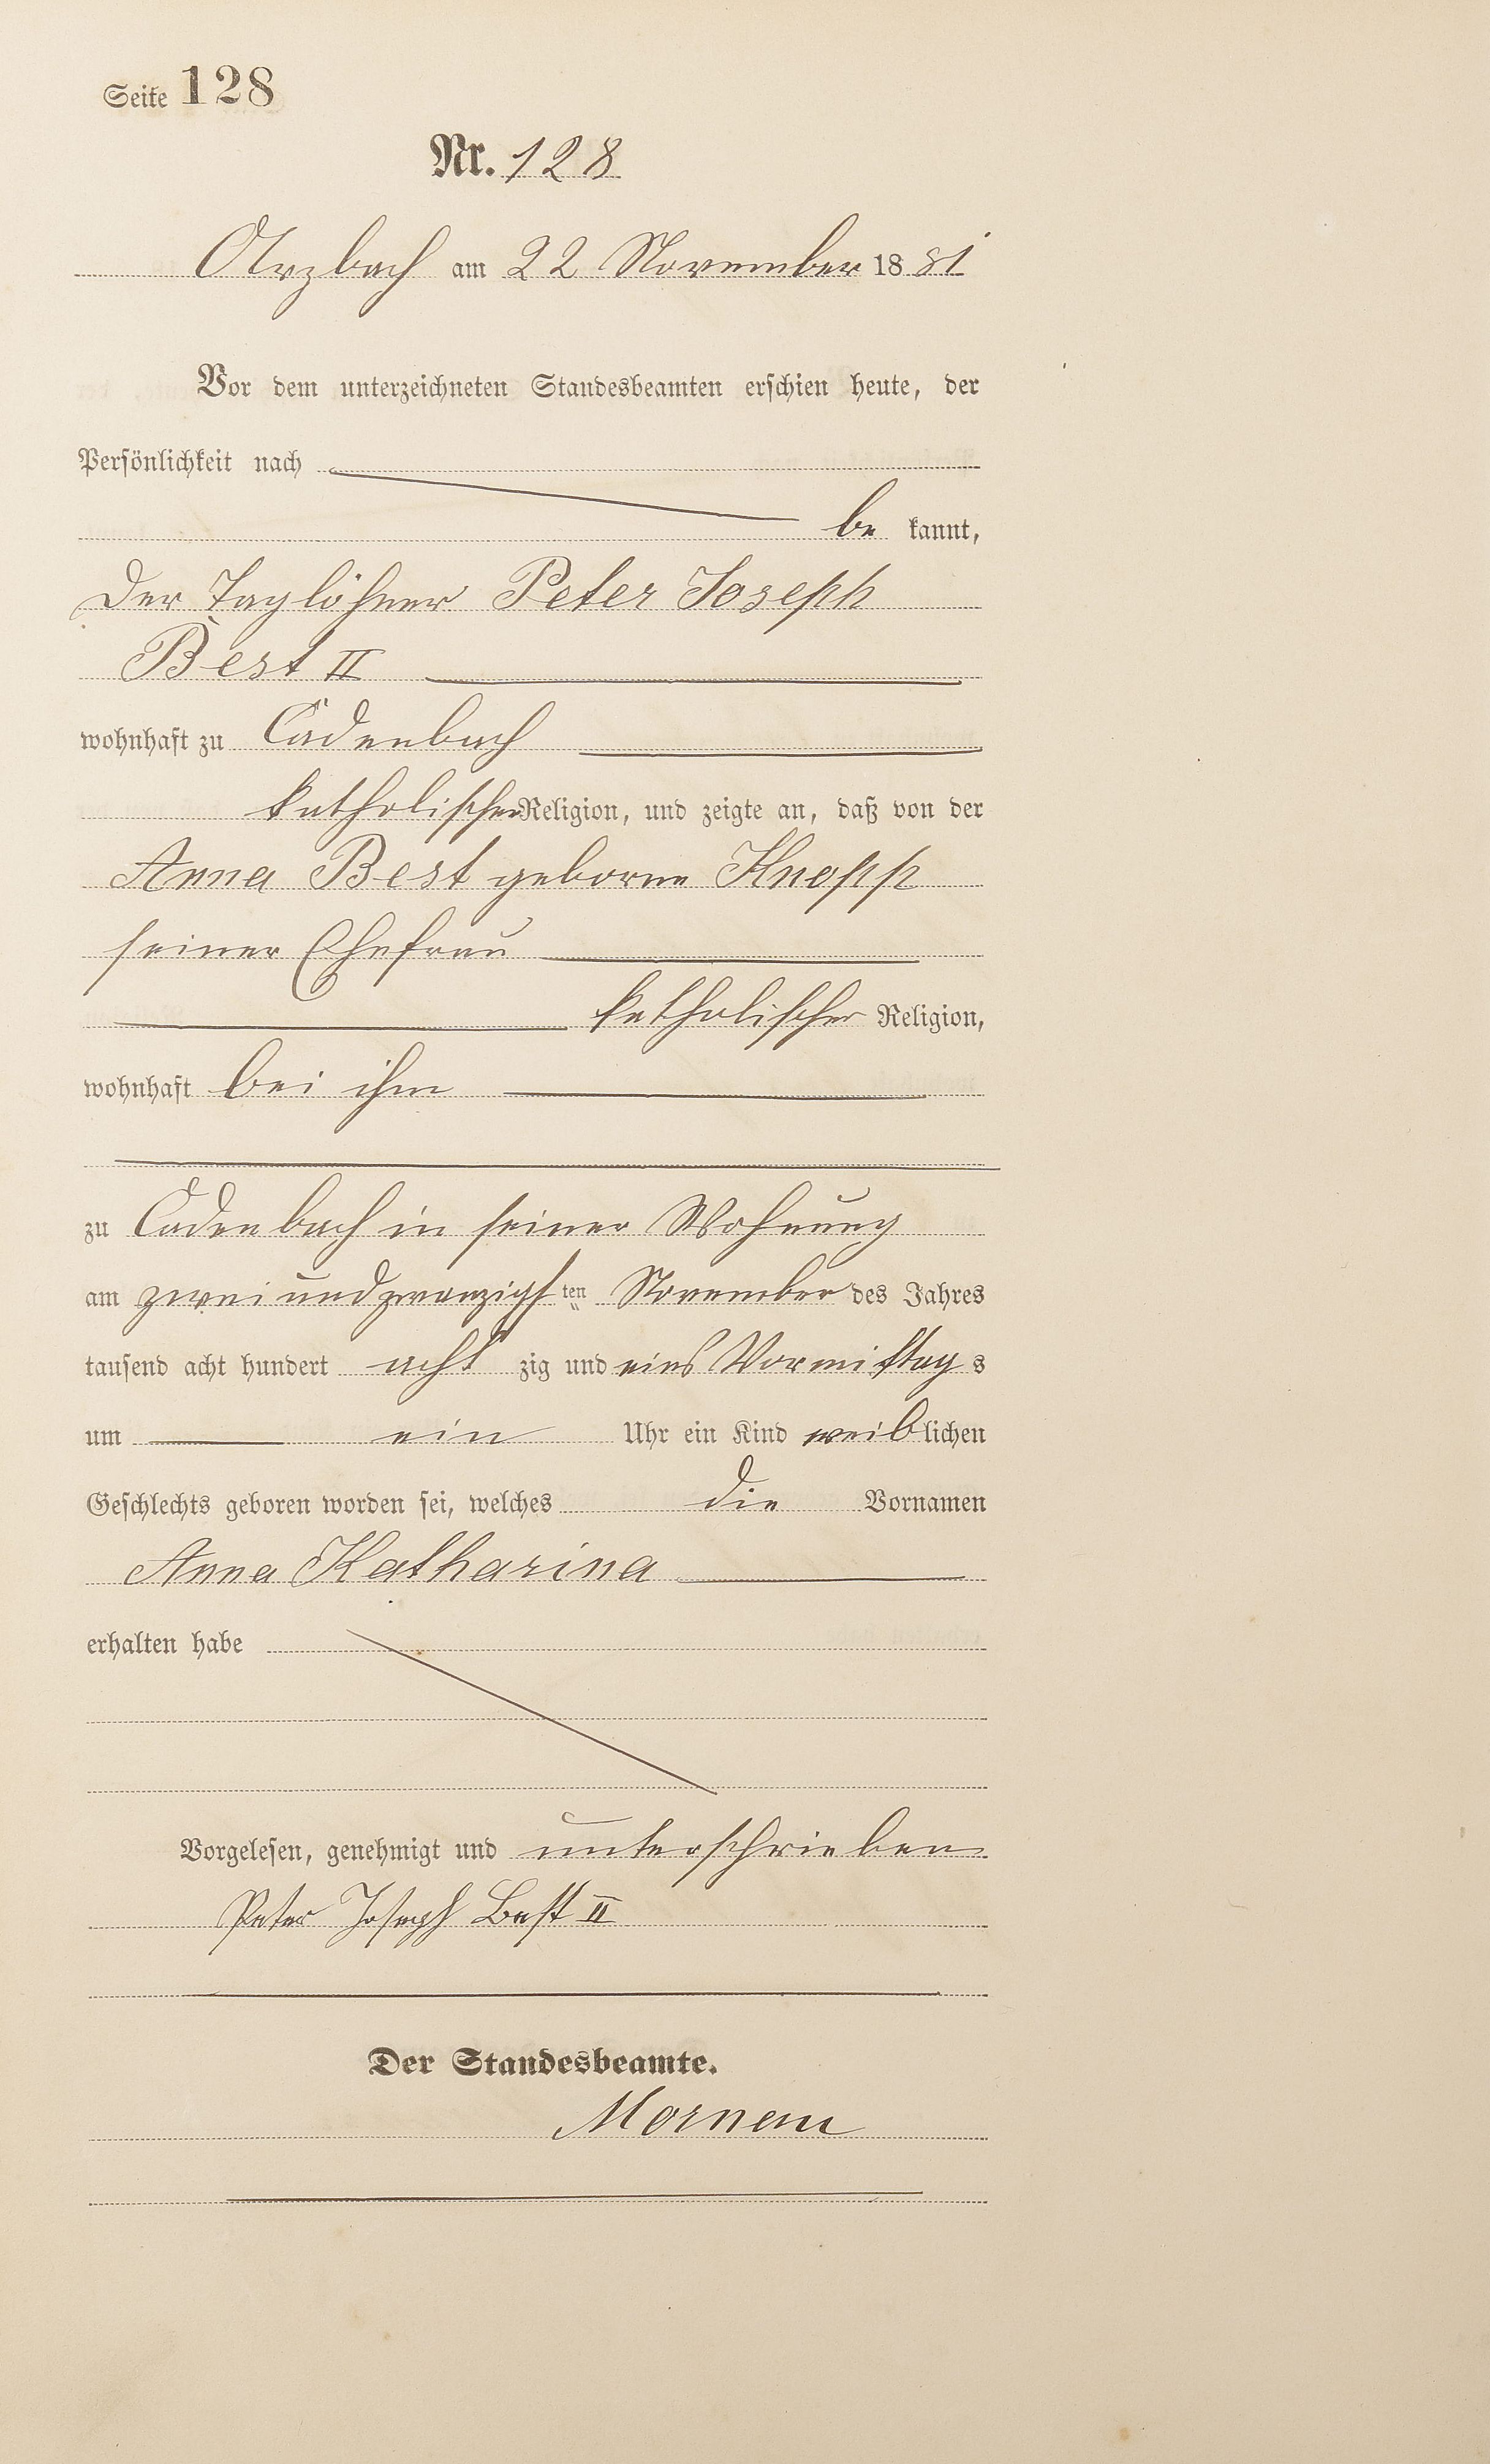 Seite 128
Nr. 128
Arzbach am 22 November 1881
Vor dem unterzeichneten Standesbeamten erschien heute, der
Persönlichkeit nach
be kannt,
Der Taglöhner Peter Joseph
Best II
wohnhaft zu Cadenbach
katholischer Religion, und zeigte an, daß von der
Anna Best geborne Knopp
seiner Ehefrau
katholischer Religion,
wohnhaft bei ihm
zu Cadenbach in seiner Wohnung
am zwei und zwanzigsten November des Jahres
tausend acht hundert acht zig und eins Vormittags
um ein Uhr ein Kind weiblichen
Geschlechts geboren worden sei, welches die Vornamen
Anna Katharina
erhalten habe
Vorgelesen, genehmigt und unterschrieben
Peter Joseph Best II
Der Standesbeamte.